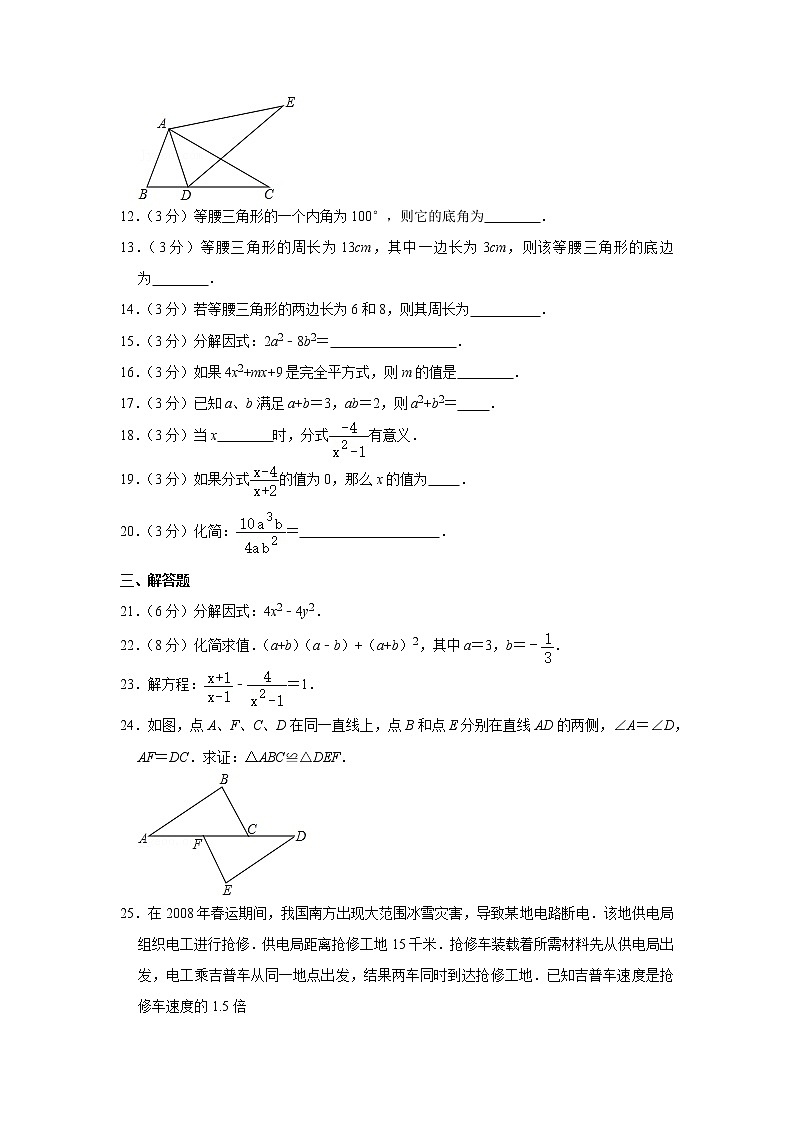 E
A
B D C
12.(3分)等腰三角形的一个内角为100°,则它的底角为________.
13.(3分)等腰三角形的周长为13cm,其中一边长为3cm,则该等腰三角形的底边
为________.
14.(3分)若等腰三角形的两边长为6和8,则其周长为__________.
15.(3分)分解因式:2a²﹣8b²=__________________.
16.(3分)如果4x²+mx+9是完全平方式,则m的值是________.
17.(3分)已知a、b满足a+b=3,ab=2,则a²+b²=____.
18.(3分)当x________时,分式\frac{-4}{x²-1}有意义.
19.(3分)如果分式\frac{x-4}{x+2}的值为0,那么x的值为____.
20.(3分)化简:\frac{10a³b}{4ab²}=____________________.
三、解答题
21.(6分)分解因式:4x²﹣4y².
22.(8分)化简求值.(a+b)(a﹣b)+(a+b)²,其中a=3,b=﹣\frac{1}{3}.
23.解方程:\frac{x+1}{x-1}﹣\frac{4}{x²-1}=1.
24.如图,点A、F、C、D在同一直线上,点B和点E分别在直线AD的两侧,∠A=∠D,
AF=DC.求证:△ABC≌△DEF.
B
A F C D
E
25.在2008年春运期间,我国南方出现大范围冰雪灾害,导致某地电路断电.该地供电局
组织电工进行抢修.供电局距离抢修工地15千米.抢修车装载着所需材料先从供电局出
发,电工乘吉普车从同一地点出发,结果两车同时到达抢修工地.已知吉普车速度是抢
修车速度的1.5倍